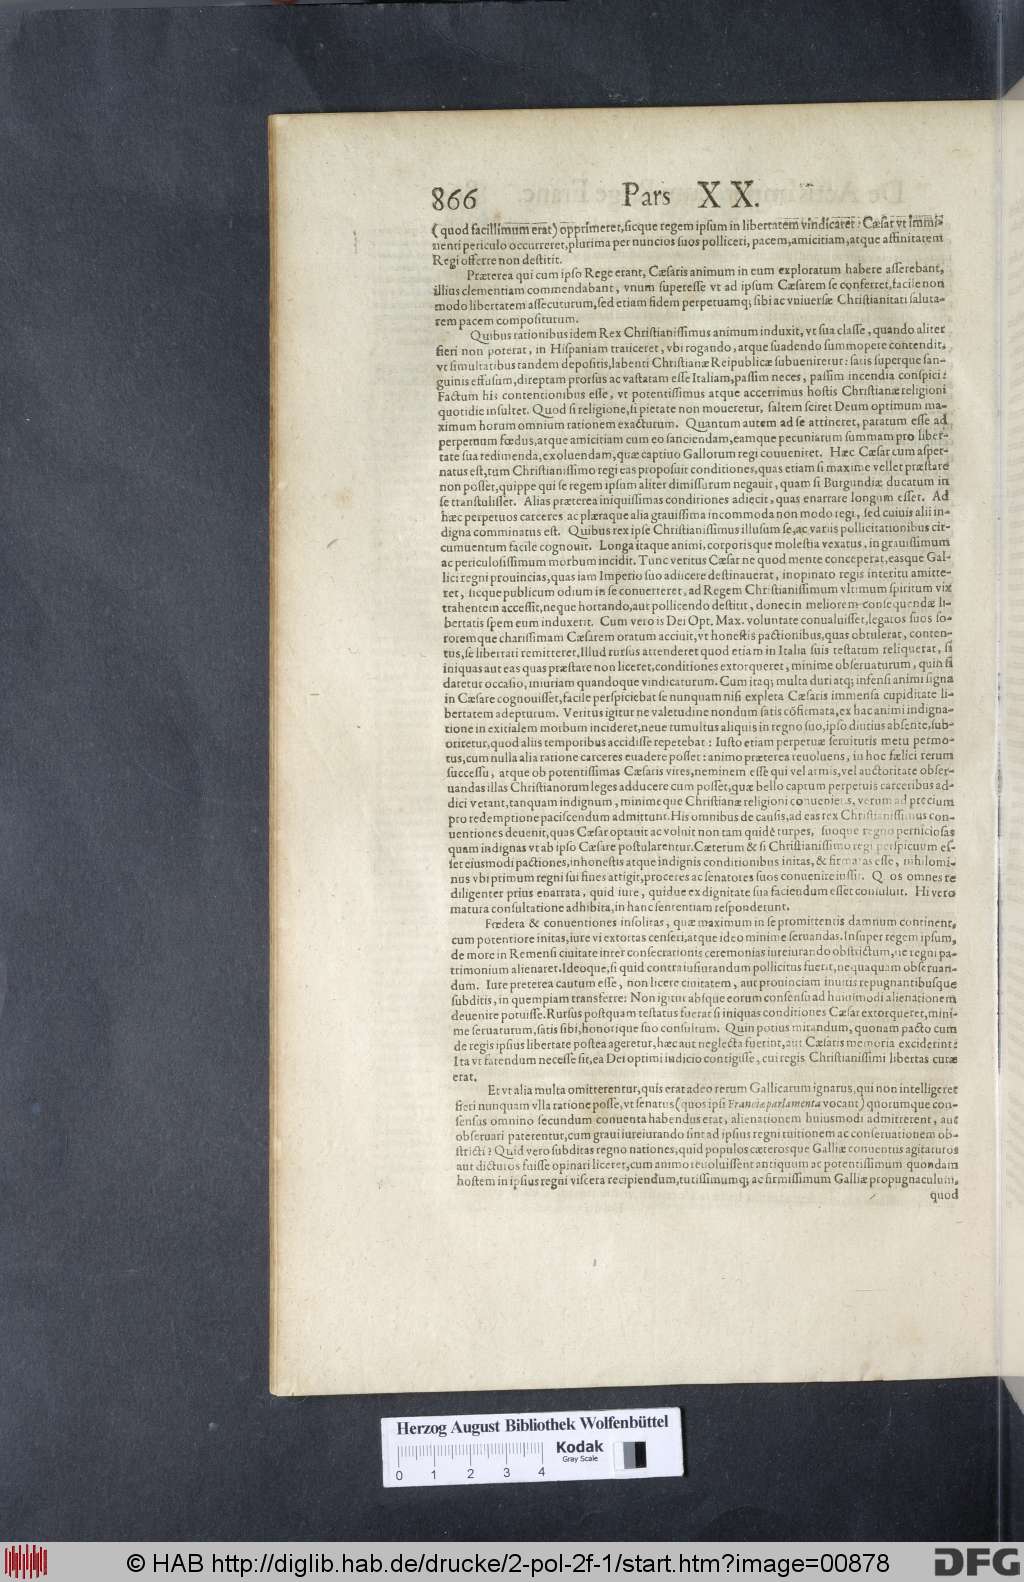 866 Pars XX.
(quod facillimum erat) opprimeret, ſicque regem ipſum in libertatem vindicaret: Cæſar vt immi-
nenti periculo occurreret, plurima per nuncios ſuos polliceri, pacem, amicitiam, atque affinitatem
Regi offerre non deſtitit.
Præterea qui cum ipſo Rege erant, Cæſaris animum in eum exploratum habere aſſerebant,
illius clementiam commendabant, vnum ſupereſſe vt ad ipſum Cæſarem ſe conferret, facile non
modo libertatem aſſecuturum, ſed etiam fidem perpetuamq; ſibi ac vniuerſæ Chriſtianitati ſaluta-
rem pacem compoſiturum.
Quibus rationibus idem Rex Chriſtianiſſimus animum induxit, vt ſua claſſe, quando aliter
fieri non poterat, in Hiſpaniam traiiceret, vbi rogando, atque ſuadendo ſummopere contendit,
vt ſimultatibus tandem depoſitis, labenti Chriſtianæ Reipublicæ ſubueniretur: ſatis ſuperque ſan-
guinis effuſum, direptam prorſus ac vaſtatam eſſe Italiam, paſſim neces, paſſim incendia conſpici:
Factum his contentionibus eſſe, vt potentiſſimus atque acerrimus hoſtis Chriſtianæ religioni
quotidie inſultet. Quod ſi religione, ſi pietate non moueretur, ſaltem ſciret Deum optimum ma-
ximum horum omnium rationem exacturum. Quantum autem ad ſe attineret, paratum eſſe ad
perpetuum fœdus, atque amicitiam cum eo ſanciendam, eamque pecuniarum ſummam pro liber-
tate ſua redimenda, exoluendam, quæ captiuo Gallorum regi conueniret. Hæc Cæſar cum aſper-
natus eſt, tum Chriſtianiſſimo regi eas propoſuit conditiones, quas etiam ſi maxime vellet præſtare
non poſſet, quippe qui ſe regem ipſum aliter dimiſſurum negauit, quam ſi Burgundiæ ducatum in
ſe tranſtuliſſet. Alias præterea iniquiſſimas conditiones adiecit, quas enarrare longum eſſet. Ad
hæc perpetuos carceres ac plæraque alia grauiſſima incommoda non modo regi, ſed cuiuis alii in-
digna comminatus eſt. Quibus rex ipſe Chriſtianiſſimus illuſum ſe, ac variis pollicitationibus cir-
cumuentum facile cognouit. Longa itaque animi, corporisque moleſtia vexatus, in grauiſſimum
ac periculoſiſſimum morbum incidit. Tunc veritus Cæſar ne quod mente conceperat, easque Gal-
lici regni prouincias, quas iam Imperio ſuo adiicere deſtinauerat, inopinato regis interitu amitte-
ret, ſicque publicum odium in ſe conuerteret, ad Regem Chriſtianiſſimum vltimum ſpiritum vix
trahentem acceſſit, neque hortando, aut pollicendo deſtitit, donec in meliorem conſequendæ li-
bertatis ſpem eum induxerit. Cum vero is Dei Opt. Max. voluntate conualuiſſet, legatos ſuos ſo-
roremque chariſſimam Cæſarem oratum acciuit, vt honeſtis pactionibus, quas obtulerat, conten-
tus, ſe libertati remitteret, Illud rurſus attenderet quod etiam in Italia ſuis teſtatum reliquerat, ſi
iniquas aut eas quas præſtare non liceret, conditiones extorqueret, minime obſeruaturum, quin ſi
daretur occaſio, iniuriam quandoque vindicaturum. Cum itaq; multa duri atq; infenſi animi ſigna
in Cæſare cognouiſſet, facile perſpiciebat ſe nunquam niſi expleta Cæſaris immenſa cupiditate li-
bertatem adepturum. Veritus igitur ne valetudine nondum ſatis cõfirmata, ex hac animi indigna-
tione in exitialem morbum incideret, neue tumultus aliquis in regno ſuo, ipſo diutius abſente, ſub-
oriretur, quod aliis temporibus accidiſſe repetebat: Iuſto etiam perpetuæ ſeruitutis metu permo-
tus, cum nulla alia ratione carceres euadere poſſet: animo præterea reuoluens, in hoc fælici rerum
ſucceſſu, atque ob potentiſſimas Cæſaris vires, neminem eſſe qui vel armis, vel auctoritate obſer-
uandas illas Chriſtianorum leges adducere cum poſſet, quæ bello captum perpetuis carceribus ad-
dici vetant, tanquam indignum, minimeque Chriſtianæ religioni conueniens, verum ad precium
pro redemptione paciſcendum admittunt. His omnibus de cauſis, ad eas rex Chriſtianiſſimus con-
uentiones deuenit, quas Cæſar optauit ac voluit non tam quidẽ turpes, ſuoque regno pernicioſas
quam indignas vt ab ipſo Cæſare poſtularentur. Cæterum & ſi Chriſtianiſſimo regi perſpicuum eſ-
ſet eiusmodi pactiones, inhoneſtis atque indignis conditionibus initas, & firmatas eſſe, nihilomi-
nus vbi primum regni ſui fines attigit, proceres ac ſenatores ſuos conuenire iuſſit. Q os omnes re
diligenter prius enarrata, quid iure, quidue ex dignitate ſua faciendum eſſet conſuluit. Hi vero
matura conſultatione adhibita, in hanc ſententiam reſponderunt.
Fœdera & conuentiones inſolitas, quæ maximum in ſe promittentis damnum continent,
cum potentiore initas, iure vi extortas cenſeri, atque ideo minime ſeruandas. Inſuper regem ipſum,
de more in Remenſi ciuitate inter conſecrationis ceremonias iureiurando obſtrictum, ne regni pa-
trimonium alienaret. Ideoque, ſi quid contra iuſiurandum pollicitus fuerit, nequaquam obſeruan-
dum. Iure preterea cautum eſſe, non licere ciuitatem, aut prouinciam inuitis repugnantibuſque
ſubditis, in quempiam transferre: Non igitur abſque eorum conſenſu ad huiuſmodi alienationem
deuenire potuiſſe. Rurſus poſtquam teſtatus fuerat ſi iniquas conditiones Cæſar extorqueret, mini-
me ſeruaturum, ſatis ſibi, honorique ſuo conſultum. Quin potius mirandum, quonam pacto cum
de regis ipſius libertate poſtea ageretur, hæc aut neglecta fuerint, aut Cæſaris memoria exciderint:
Ita vt fatendum neceſſe ſit, ea Dei optimi iudicio contigiſſe, cui regis Chriſtianiſſimi libertas curæ
erat.
Et vt alia multa omitterentur, quis erat adeo rerum Gallicarum ignarus, qui non intelligeret
fieri nunquam vlla ratione poſſe, vt ſenatus (quos ipſi Franciæ parlamenta vocant) quorumque con-
ſenſus omnino ſecundum conuenta habendus erat, alienationem huiusmodi admitterent, aut
obſeruari paterentur, cum graui iureiurando ſint ad ipſius regni tuitionem ac conſeruationem ob-
ſtricti? Quid vero ſubditas regno nationes, quid populos cæterosque Galliæ conuentus agitaturos
aut dicturos fuiſſe opinari liceret, cum animo reuoluiſſent antiquum ac potentiſſimum quondam
hoſtem in ipſius regni viſcera recipiendum, tutiſſimumq; ac firmiſſimum Galliæ propugnaculum,
quod
Herzog August Bibliothek Wolfenbüttel
Kodak
Gray Scale
0 1 2 3 4
© HAB http://diglib.hab.de/drucke/2-pol-2f-1/start.htm?image=00878
DFG